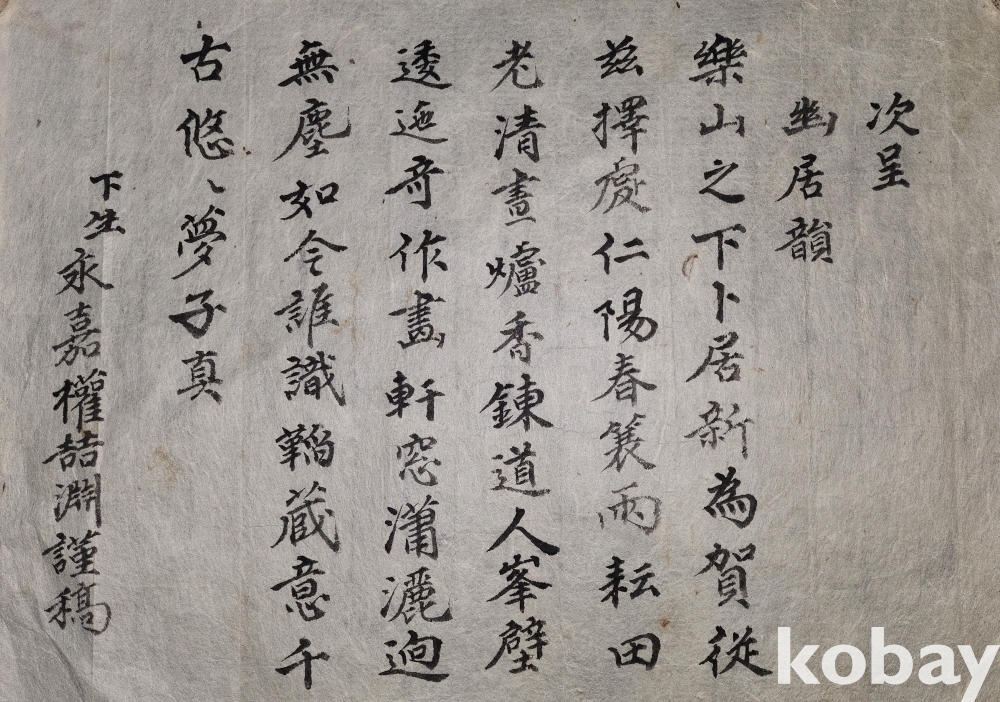 次呈
幽居韻
樂山之下卜居新為賀從
玆擇處仁陽春簑雨耘田
老清晝爐香鍊道人峯壁
逶迤奇作畵軒窓瀟灑逈
無塵如今誰識韜蔵意千
古悠〻夢子真
下生
永嘉權喆淵謹稿
kobay